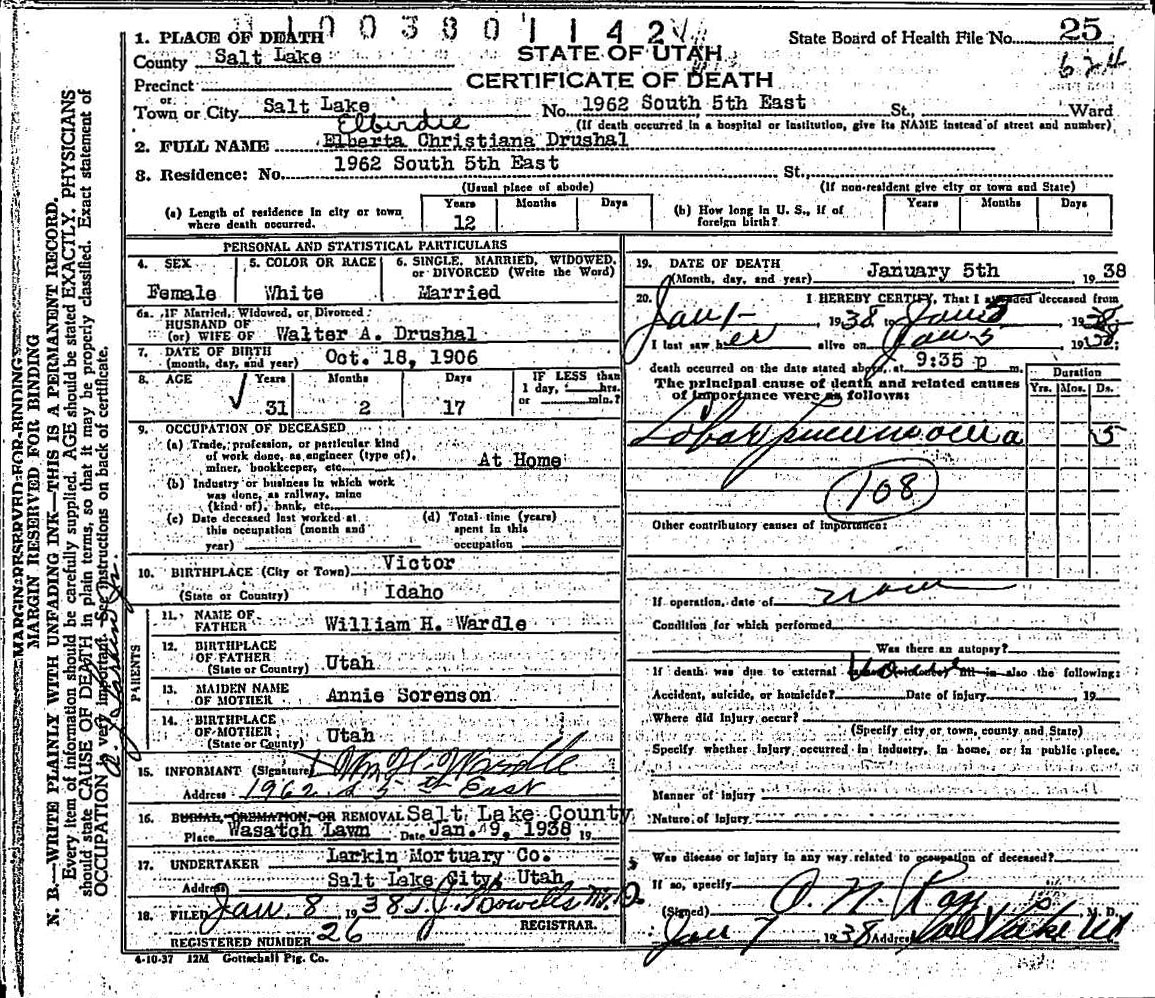 1003801142
1. PLACE OF DEATH
State Board of Health File No. 25
County Salt Lake
STATE OF UTAH
624
Precinct
CERTIFICATE OF DEATH
Town or City Salt Lake No. 1962 South 5th East St., Ward
(If death occurred in a hospital or institution, give its NAME instead of street and number)
Elbirdie
2. FULL NAME Elberta Christiana Drushal
3. Residence: No. 1962 South 5th East St.,
(Usual place of abode) (If non-resident give city or town and State)
(a) Length of residence in city or town where death occurred. Years 12 Months Days
(b) How long in U. S., if of foreign birth? Years Months Days
PERSONAL AND STATISTICAL PARTICULARS
4. SEX Female
5. COLOR OR RACE White
6. SINGLE, MARRIED, WIDOWED, or DIVORCED (Write the Word) Married
6a. IF Married, Widowed, or Divorced
HUSBAND OF
(or) WIFE OF Walter A. Drushal
7. DATE OF BIRTH
(month, day, and year) Oct. 18, 1906
8. AGE Years 31 Months 2 Days 17
IF LESS than
1 day, hrs.
or min.?
9. OCCUPATION OF DECEASED
(a) Trade, profession, or particular kind
of work done, as engineer (type of),
miner, bookkeeper, etc. At Home
(b) Industry or business in which work
was done, as railway, mine
(kind of), bank, etc.
(c) Date deceased last worked at
this occupation (month and
year)
(d) Total time (years)
spent in this
occupation
10. BIRTHPLACE (City or Town) Victor
(State or Country) Idaho
PARENTS
11. NAME OF
FATHER William H. Wardle
12. BIRTHPLACE
OF FATHER
(State or Country) Utah
13. MAIDEN NAME
OF MOTHER Annie Sorenson
14. BIRTHPLACE
OF MOTHER
(State or Country) Utah
15. INFORMANT (Signature) Wm H. Wardle
Address 1962 S 5th East
16. BURIAL, CREMATION, OR REMOVAL Salt Lake County
Place Wasatch Lawn Date Jan. 9, 1938 19
17. UNDERTAKER Larkin Mortuary Co.
Address Salt Lake City, Utah
18. FILED Jan. 8 1938 T. J. Howells M.D.
REGISTRAR.
REGISTERED NUMBER 26
4-10-37 12M Gottschall Ptg. Co.
19. DATE OF DEATH
(Month, day, and year) January 5th 1938
20. I HEREBY CERTIFY, That I attended deceased from
Jan 1- 1938 to Jan 5 1938
I last saw her alive on Jan 5 1938
death occurred on the date stated above, at 9:35 p m.
The principal cause of death and related causes
of importance were as follows:
Duration
Yrs. Mos. Ds.
Lobar pneumonia 5
108
Other contributory causes of importance:
If operation, date of none
Condition for which performed
Was there an autopsy?
If death was due to external causes (violence) fill in also the following:
Accident, suicide, or homicide? Date of injury 19
Where did injury occur?
(Specify city or town, county and State)
Specify whether injury occurred in industry, in home, or in public place.
Manner of injury
Nature of injury
Was disease or injury in any way related to occupation of deceased?
If so, specify
(Signed) O. N. Ray M. D.
Jan 7 1938 Address Salt Lake Ut
MARGIN RESERVED FOR BINDING
MARGIN RESERVED FOR BINDING
N. B.—WRITE PLAINLY WITH UNFADING INK—THIS IS A PERMANENT RECORD.
Every item of information should be carefully supplied. AGE should be stated EXACTLY. PHYSICIANS
should state CAUSE OF DEATH in plain terms, so that it may be properly classified. Exact statement of
OCCUPATION is very important. See instructions on back of certificate.